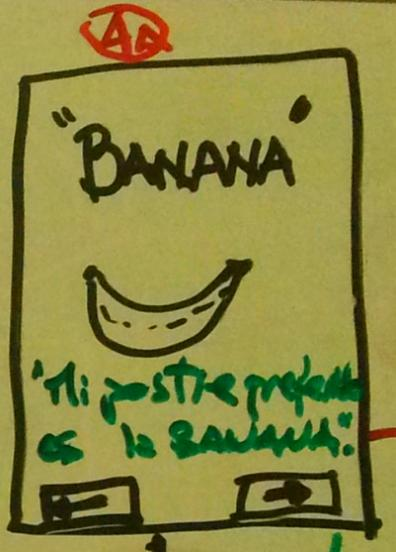 "BANANA"
"Mi postre preferido
es la BANANA".